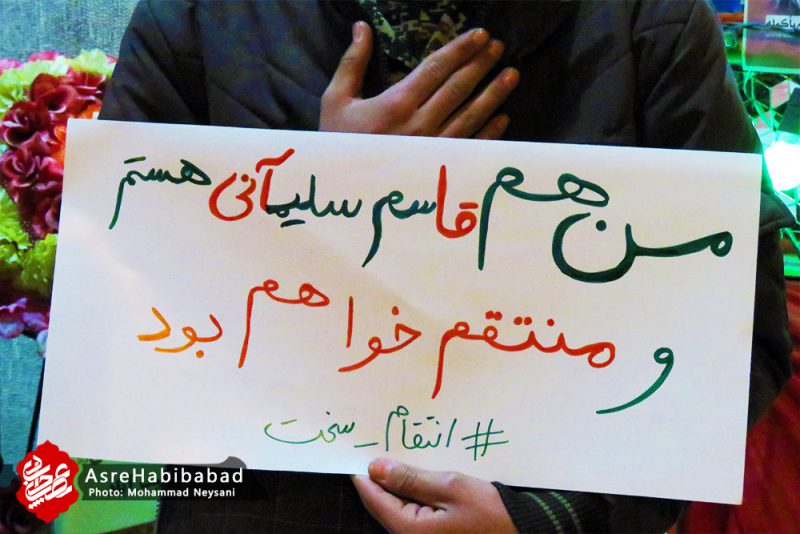 من هم قاسم سلیمانی هستم
و منتقم خواهم بود
#انتقام_سخت
AsreHabibabad
Photo: Mohammad Neysani